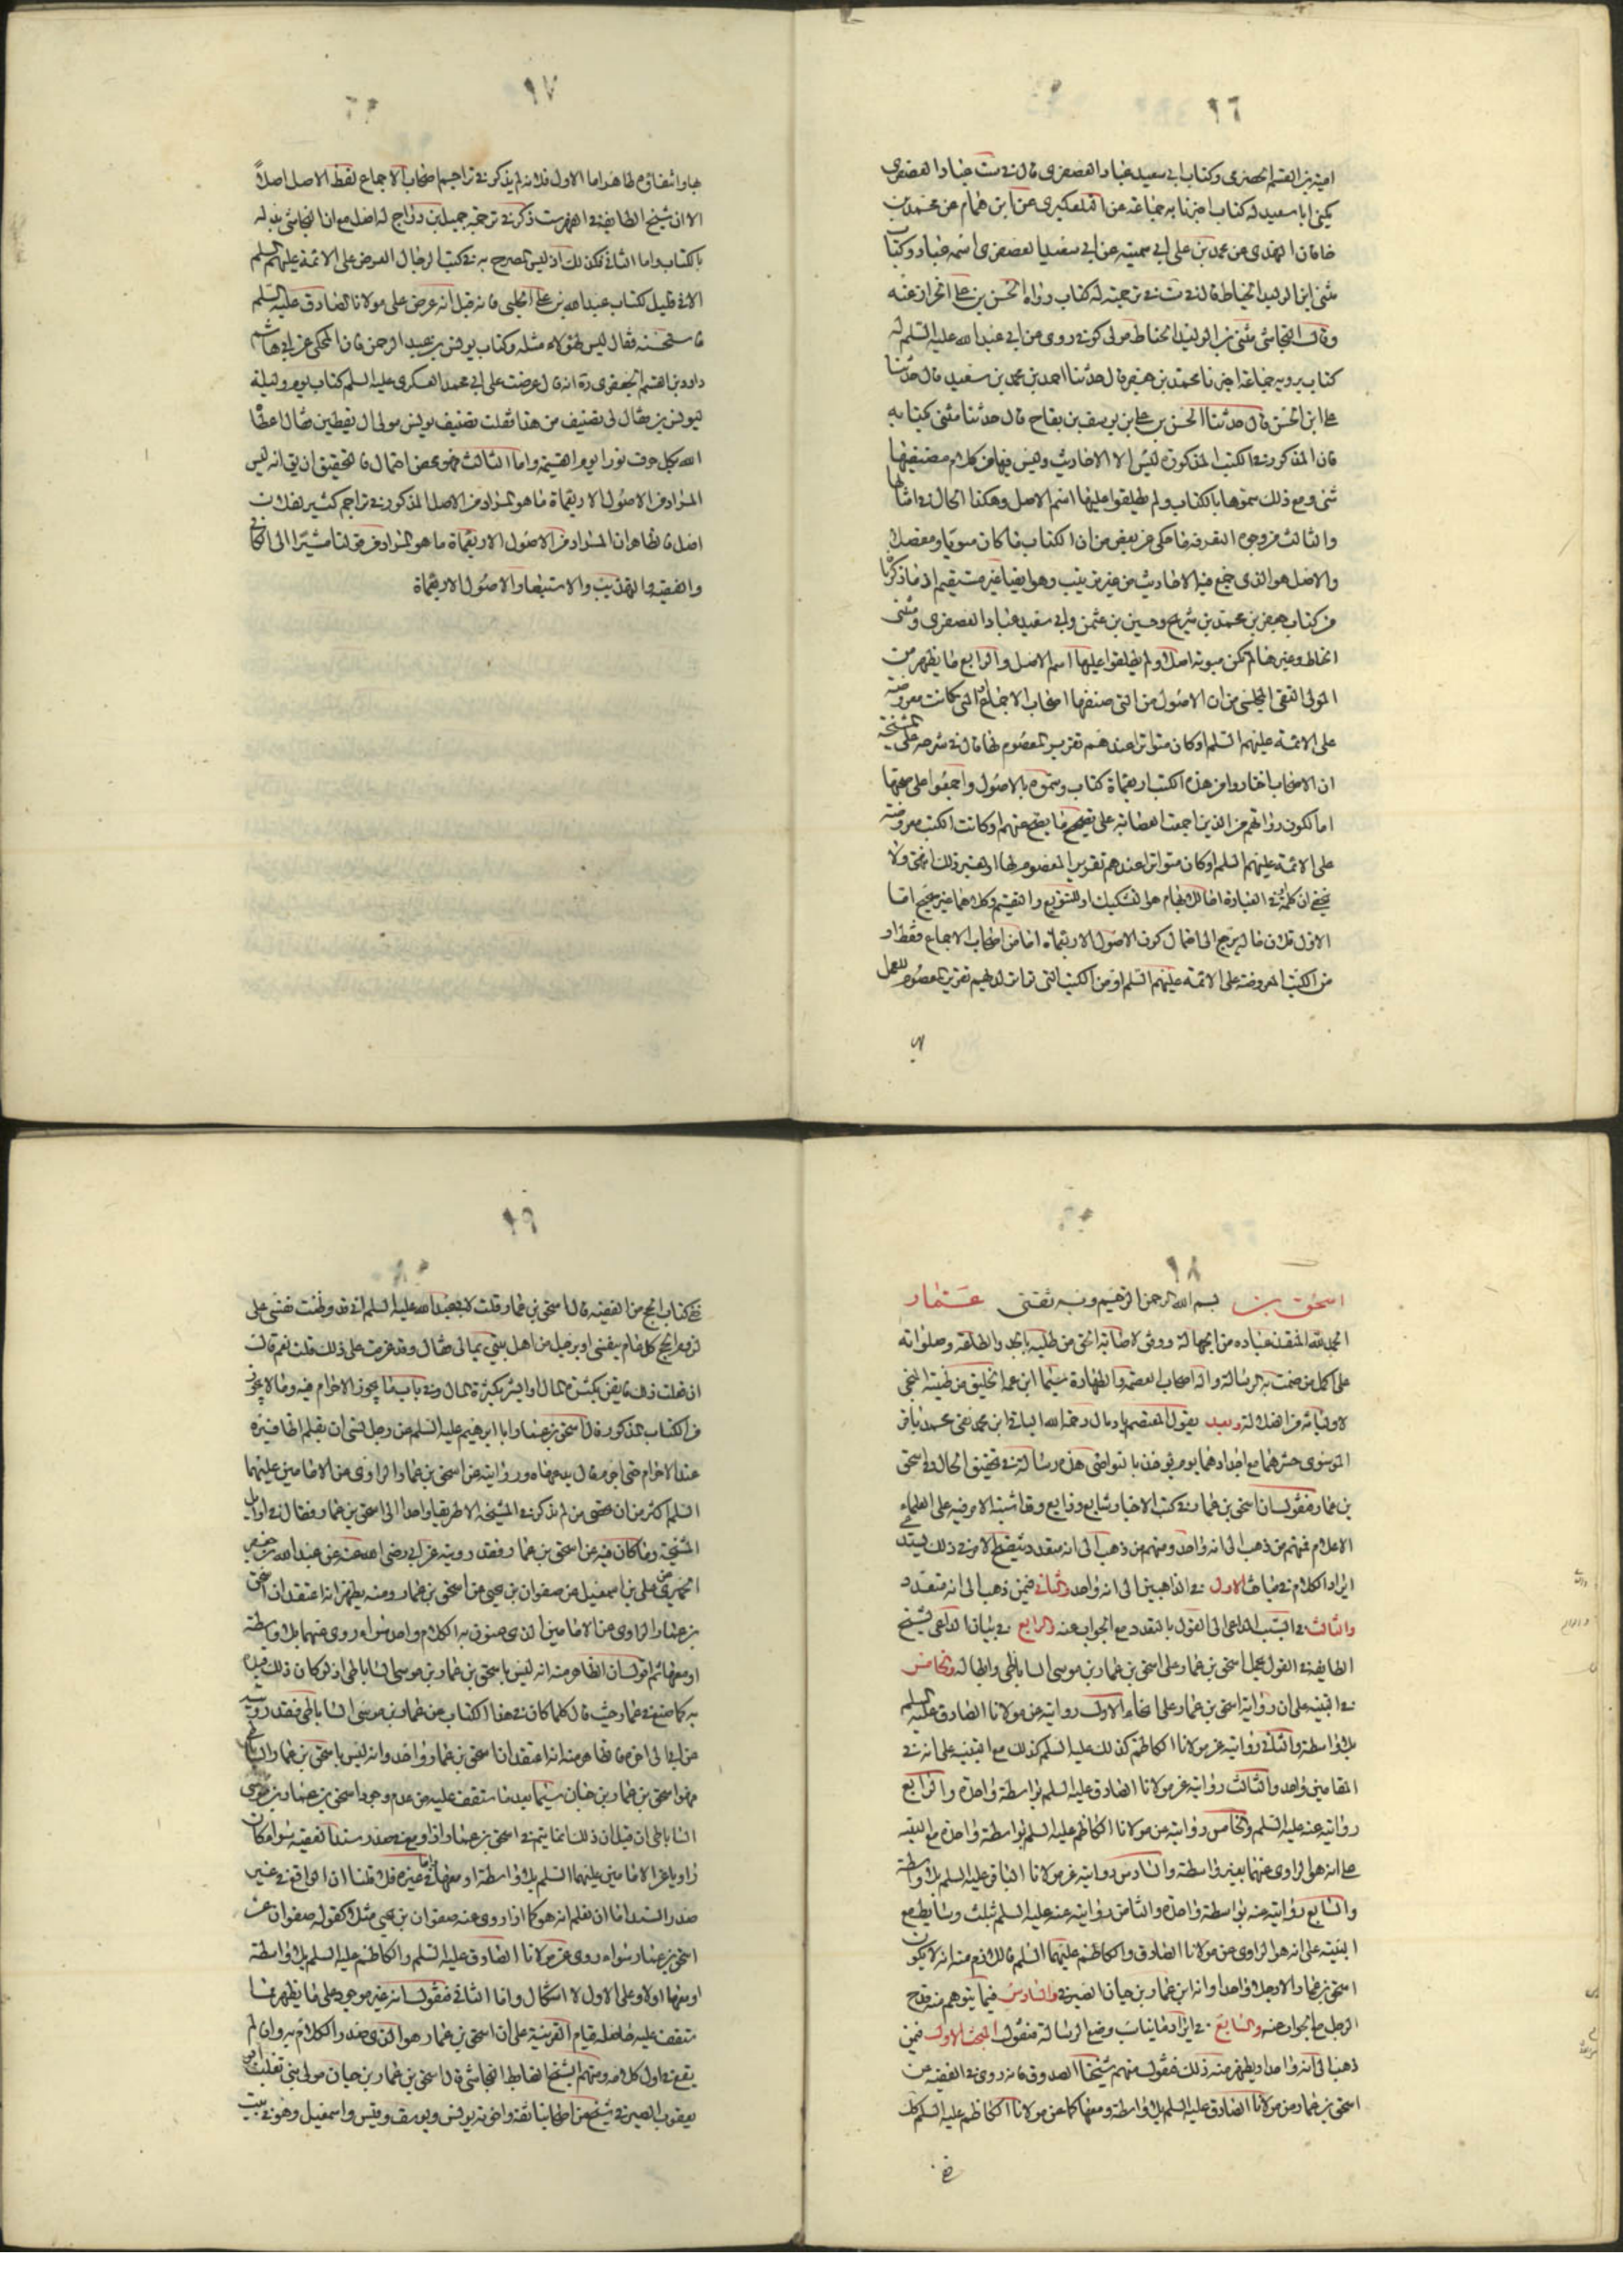 ٩٦
امية بن القسم الحضرى وكتاب ابى سعيد عباد العصفرى قال فى ست عباد العصفرى
يكنى ابا سعيد له كتاب اخبرنا به جماعة عن التلعكبرى عن ابن همام عن محمد بن
خاقان النهدى عن محمد بن على ابى سمينة عن ابى سعيد العصفرى اسمه عباد وكتاب
مثنى ابن الوليد الحناط قال فى ست فى ترجمته له كتاب رواه الحسن بن على الخزاز عنه
وقال النجاشى مثنى بن الوليد الحناط مولى كوفى روى عن ابى عبد الله عليه السلم له
كتاب يرويه جماعة اخبرنا محمد بن جعفر قال حدثنا احمد بن محمد بن سعيد قال حدثنا
على ابن الحسن قال حدثنا الحسن بن على بن يوسف بن بقاح قال حدثنا مثنى بكتابه
فان المذكور فى الكتب المذكورة ليس الا الاحاديث وليس فيها من كلام مصنفيها
شئ ومع ذلك سموها بالكتاب ولم يطلقوا عليها اسم الاصل وهكذا الحال فى امثالها
والثالث من وجوه التفرقة ما حكى عن بعض من ان الكتاب ما كان مبوبا ومفصلا
والاصل هو الذى جمع فيه الاحاديث من غير ترتيب وهو ايضا غير مستقيم اذ ما ذكرنا
من كتاب جعفر بن محمد بن شريح وحسين بن عثمن وابى سعيد عباد العصفرى ومثنى
الحناط وغيرها لم تكن مبوبة اصلا ولم يطلقوا عليها اسم الاصل والرابع ما يظهر من
المولى التقى المجلسى من ان الاصول من التى صنفها اصحاب الاجماع او التى كانت معروضة
على الائمة عليهم السلم او كان متواترا عندهم تقرير المعصوم لها قال فى شرحه على المشيخة
ان الاصحاب اختاروا من هذه الكتب اربعماة كتاب وسموه بالاصول واجمعوا على صحتها
اما لكون رواتهم من الذين اجمعت العصابة على تصحيح ما يصح عنهم او كانت الكتب معروضة
على الائمة عليهم السلم او كان متواترا عندهم تقرير المعصوم لها او لغير ذلك انتهى ولا
يخفى ان كلمة او فى العبارة اما للابهام هو التشكيك او للتنويع والتقسيم وكلاهما غير صحيح اما
الاول فلان ماله يرجع الى احتمال كون الاصول الاربعماة اما من اصحاب الاجماع فقط او
من الكتب المعروضة على الائمة عليهم السلم او من الكتب التى ثابت لديهم تقرير المعصوم للعمل
٩٧
بها وانتفاؤه ظاهر اما الاول فلانه لم يذكر فى تراجم اصحاب الاجماع لفظ الاصل اصلاً
الا ان شيخ الطايفة فى الفهرست ذكر فى ترجمة جميل بن دراج له اصل مع ان النجاشى بدله
بالكتاب واما الثانى فكذلك اذ ليس التصريح به فى كتب الرجال العرض على الائمة عليهم السلم
الا فى قليل ككتاب عبد الله بن على الحلبى فانه قيل انه عرض على مولانا الصادق عليه السلم
فاستحسنه فقال ليس لهؤلاء مثله وكتاب يونس بن عبد الرحمن فان المحكى عن ابى هاشم
داود بن القسم الجعفرى ره انه قال عرضت على ابى محمد العسكرى عليه السلم كتاب يوم وليلة
ليونس بن فقال لى تصنيف من هذا فقلت تصنيف يونس مولى ال يقطين فقال اعطاه
الله بكل حرف نورا يوم القيمة واما الثالث فهو محض احتمال فالتحقيق ان يق انه ليس
المراد من الاصول الاربعماة ما هو المراد من الاصل المذكور فى تراجم كثير لفلان
اصل فالظاهر ان المراد من الاصول الاربعماة ما هو المراد من قولنا مشيرا الى الكافى
والفقيه والتهذيب والاستبصار الاصول الاربعماة
٩٨
اسحق بن بسم الله الرحمن الرحيم وبه ثقتى عمار
الحمد لله المنقذ عباده من الجهالة ووفق لاصابة الحق من طلبه بالجد والطاقة وصلواته
على اكمل من ختمت به الرسالة واله اصحاب العصمة والطهارة سيما ابن عمه الخليق من طينته المنجى
لاوليائه من الضلالة وبعد يقول المعتصم بحبل رحمة الله الباقى ابن محمد نقى محمد باقر
الموسوى حشرهما مع اجدادهما يوم يؤخذ بالنواصى هذه رسالة فى تحقيق الحال فى اسحق
بن عمار فنقول ان اسحق بن عمار فى كتب الاخبار شايع وذايع وقد اشتبه الامر فيه على العلماء
الاعلام فمنهم من ذهب الى انه واحد ومنهم من ذهب الى انه متعدد وتنقيح الامر فى ذلك يستدعى
ايراد الكلام فى مباحث الاول فى الذاهبين الى انه واحد والثانى فيمن ذهب الى انه متعدد
والثالث فى السبب الداعى الى القول بالتعدد مع الجواب عنه والرابع فى بيان الداعى لشيخ
الطايفة فى القول بحمل اسحق بن عمار على اسحق بن عمار بن موسى الساباطى وابطاله والخامس
فى التنبيه على ان رواية اسحق بن عمار على انحاء الاول روايته عن مولانا الصادق عليه السلم
بلا واسطة والثانى روايته عن مولانا الكاظم كذلك عليه السلم كذلك مع التنبيه على انه فى
المقامين واحد والثالث روايته عن مولانا الصادق عليه السلم بواسطة واحدة والرابع
روايته عنه عليه السلم والخامس روايته عن مولانا الكاظم عليه السلم بواسطة واحدة مع التنبيه
على انه هو الراوى عنهما بغير واسطة والسادس روايته عن مولانا الباقر عليه السلم بلا واسطة
والسابع روايته عنه بواسطة واحدة والثامن روايته عنه عليه السلم بثلث وسايط مع
التنبيه على انه هو الراوى عن مولانا الصادق والكاظم عليهما السلم فاللازم منه انه لا يكون
اسحق بن عمار الا رجلا واحدا وانه ابن عمار بن حيان الصيرفى والسادس فيما يتوهم منه قدح
الرجل مع الجواب عنه والسابع فى ايراد ما يناسب وضع الرسالة فنقول المبحث الاول فيمن
ذهب الى انه واحد او يظهر منه ذلك فنقول منهم شيخنا الصدوق فانه روى فى الفقيه عن
اسحق بن عمار عن مولانا الصادق عليه السلم بلا واسطة ومعها كما عن مولانا الكاظم عليه السلم كك
٩٩
ففى كتاب الحج من الفقيه قال اسحق بن عمار قلت لابى عبد الله عليه السلم انى قد وطنت نفسى على
لزوم الحج كل عام بنفسى او برجل من اهل بيتى بمالى فقال وقد عزمت على ذلك قلت نعم قال
ان فعلت ذلك فايقن بكثرة المال او ابشر بكثرة المال وفى باب ما يجوز الاحرام فيه وما لا يجوز
من الكتاب المذكور قال اسحق بن عمار ابا ابرهيم عليه السلم عن رجل نسى ان يقلم اظافيره
عند الاحرام حتى احرم قال يدعها ه وروايته عن اسحق بن عمار الراوى عن الامامين عليهما
السلم اكثر من ان تحصى من لم يذكر فى المشيخة الا طريقا واحدا الى اسحق بن عمار فقال فى اوايل
المشيخة وما كان فيه عن اسحق بن عمار فقد رويته عن ابى رضى الله عنه عن عبد الله بن جعفر
الحميرى عن على بن اسمعيل عن صفوان بن يحيى عن اسحق بن عمار ومنه يظهر انه اعتقد ان اسحق
بن عمار الراوى عن الامامين الذى عنون به الكلام واحد سواء روى عنهما بلا واسطة
او معها ثم اقول ان الظاهر منه انه ليس باسحق بن عمار بن موسى الساباطى اذ لو كان ذلك لقيده
به كما صنع فى عمار حيث قال كلما كان فى هذا الكتاب عن عمار بن موسى الساباطى فقد رويته
عن ابى الى اخره فالظاهر منه انه اعتقد ان اسحق بن عمار واحد وانه ليس باسحق بن عمار الساباطى
فهو اسحق بن عمار بن حيان سيما بعد ما ستقف عليه من عدم وجود اسحق بن عمار بن موسى
الساباطى ان قيل ان ذلك انما يتم فى اسحق بن عمار اذا وقع فى صدر سند الفقيه سواء كان
راويا عن الامامين عليهما السلم بلا واسطة او معها واما فى غيره فلا قلنا ان الواقع فى غير
صدر السند اما ان نعلم انه هو كما اذا روى عنه صفوان بن يحيى مثلا كقوله صفوان عن
اسحق بن عمار سواء روى عن مولانا الصادق عليه السلم والكاظم عليه السلم بلا واسطة
او معها اولا وعلى الاول لا اشكال واما الثانى فنقول انه غير موجود على ما يظهر مما
ستقف عليه قيام القرينة على ان اسحق بن عمار هو الذى صدر الكلام به وان لم
يقع فى اول كلامه ومنهم الشيخ الضابط النجاشى قال اسحق بن عمار بن حيان مولى بنى تغلب ابو
يعقوب الصيرفى شيخ من اصحابنا ثقة واخوته يونس ويوسف وقيس واسمعيل وهو فى بيت